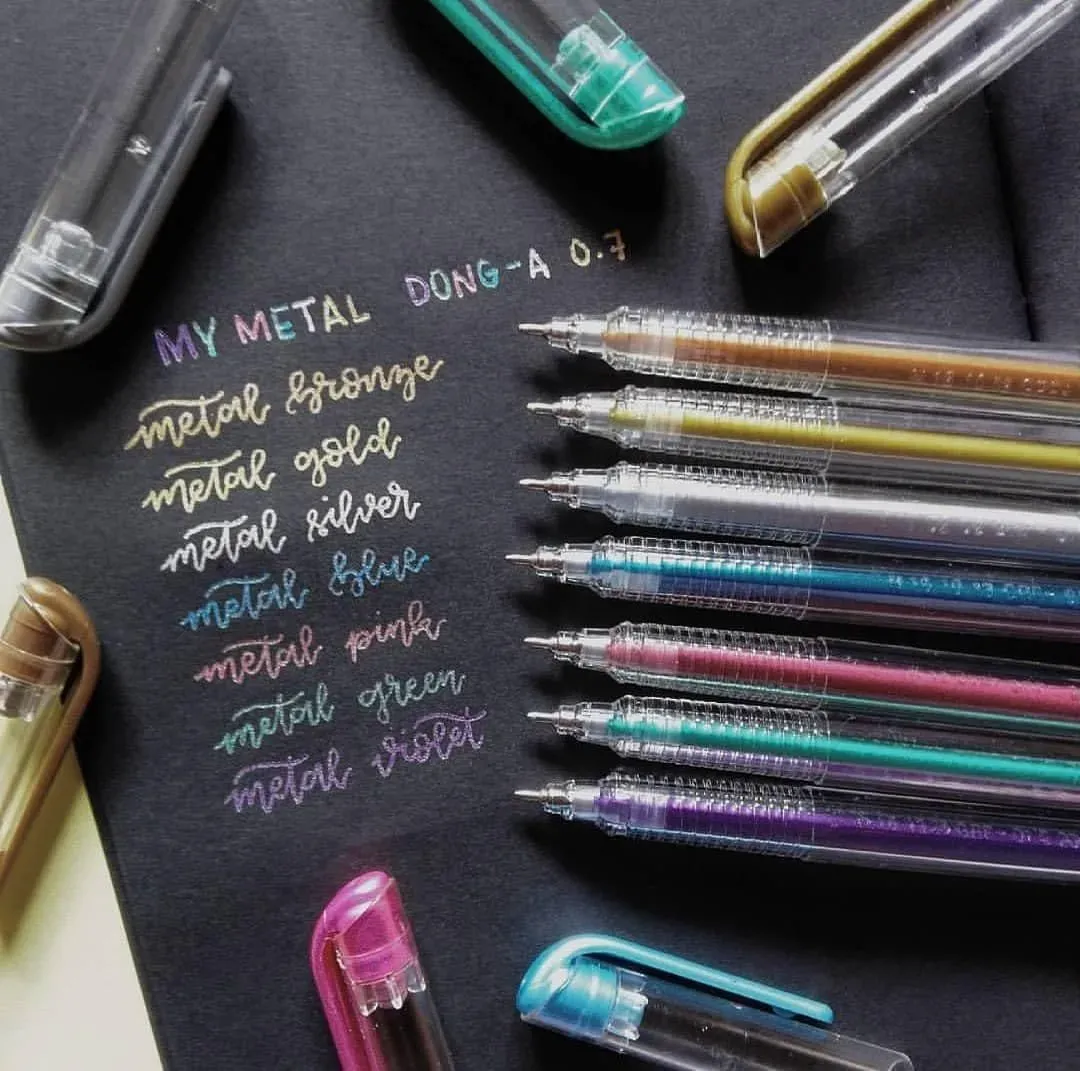 MY METAL DONG-A 0.7
metal bronze
metal gold
metal silver
metal blue
metal pink
metal green
metal violet